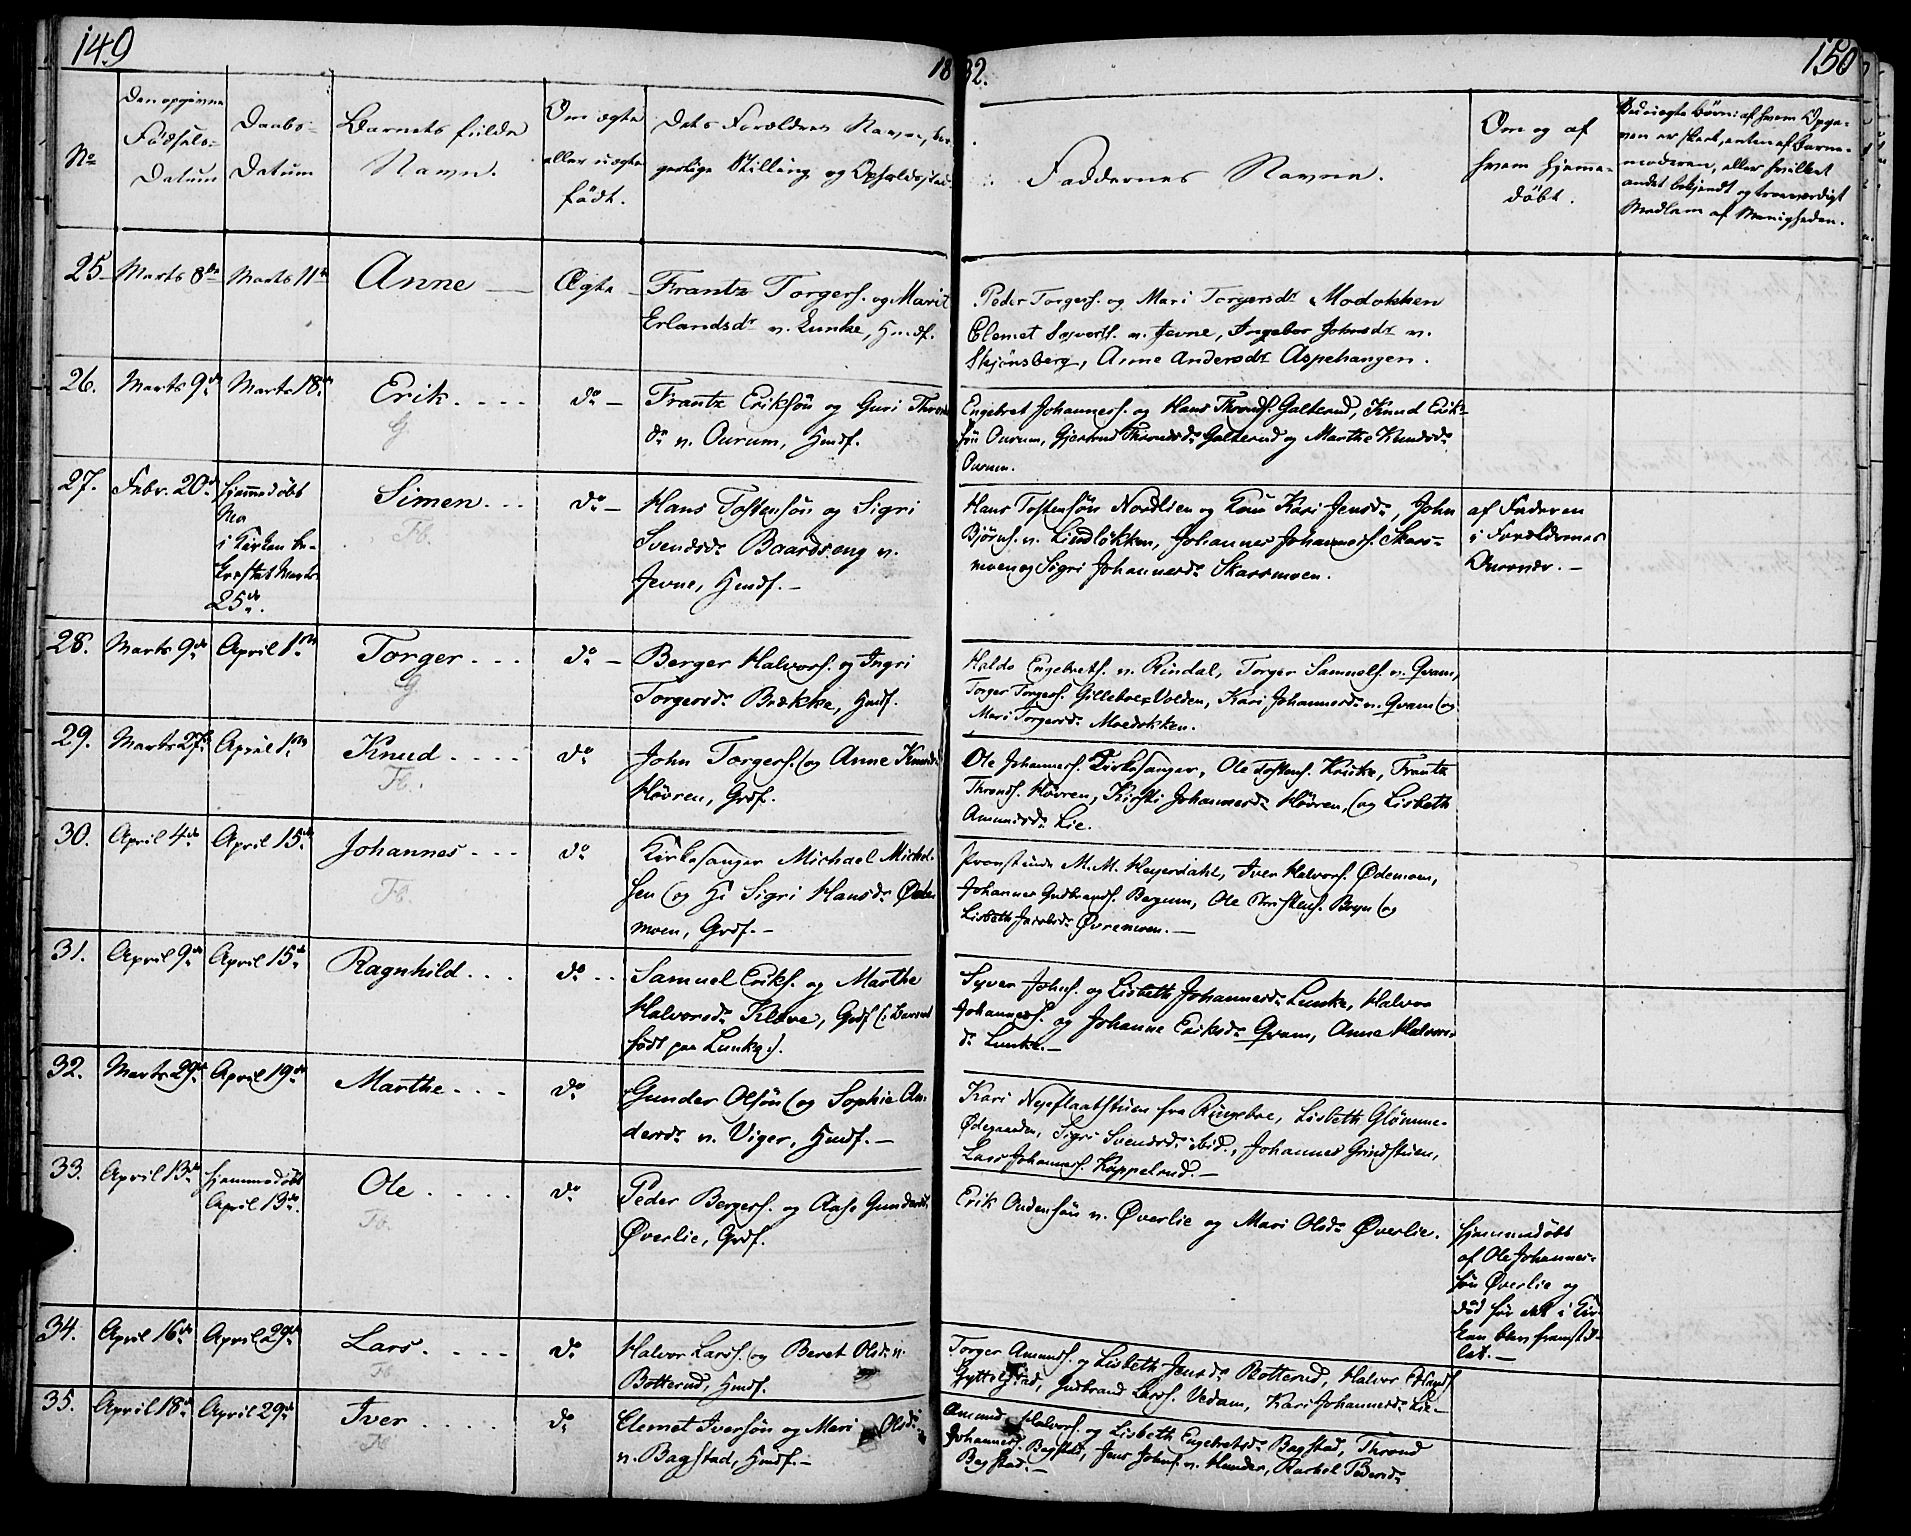 149
1832.
150
No
Den opgivne Fødsels-Datum
Daabs-Datum
Barnets fulde Navn.
Om ægte eller uægte født.
Dets Forældres Navn, borgerlige Stilling og Opholdssted
Faddernes Navne.
Om og af hvem hjemmedøbt.
25 Marts 8de Marts 11te Anne Ægte
Frantz Torgers. og Marit
Erlandsdr n. Lunke, Hmdf.
Peder Torgers. og Mari Torgersdr Modokken
Clemet Syvers. n. Jevne, Ingebor Johnsdr n.
Skjønsberg, Anne Andersdr Aspehaugen.
26. Marts 9de Marts 18de Erik G do
Frantz Eriksøn og Guri Thrond
dr n. Ourum, Hmdf.
Engebret Johannes. og Hans Thronds. Galterud, Knud Erik-
søn Ourum, Gjertrud Throndsdr Galterud og Marthe Knudsdr
Ourum.
27. Febr. 20de Hjemmedøbt Men i Kirken be- kræftet Marts 25de. Simen Fb. do
Hans Tostensøn og Sigri
Svendsdr Baardseng n.
Jevne, Hmdf.
Hans Tostensøn Nordlien og Kone Kari Jensdr, John
Bjørns. n. Lindløkken, Johannes Johannes. Skars-
moen og Sigri Johannesdr Skarsmoen.
af Faderen
i Forældrenes
Nærvær.
28. Marts 9de April 1ste Torger G do
Berger Halvors. og Ingri
Torgersdr Brække, Hmdf.
Haldo Engebrets. n. Rindal, Torger Samuels. n. Qvam,
Torger Torgers. Gilleboe Volden, Kari Johannesdr n. Qvam og
Mari Torgersdr Moedokken.
29. Marts 27de April 1ste Knud Fb. do
John Torgers. og Anne Knudsdr
Høvren, Grdf.
Ole Johannes. Kirkesanger, Ole Tostens. Kruke, Frantz
Thronds. Høvren, Kirsti Johannesdr Høvren, og Lisbeth
Amundsdr Lie.
30. April 4de April 15de Johannes Fb. do
Kirkesanger Michael Michel-
sen og H Sigri Hansdr Øde
moen, Grdf.
Provstinde M. M. Heyerdahl, Iver Halvors. Ødemoen,
Johannes Gudbrands. Bergum, Ole Christens. Bryn og
Lisbeth Jacobsdr Øvremoen.
31. April 9de April 15de Ragnhild do
Samuel Eriks. og Marthe
Halvorsdr Kløve, Grdf (: Barnet
født paa Lunke :).
Syver Johns. og Lisbeth Johannesdr Lunke, Halvor
Johannes. og Johanne Eriksdr Qvam, Anne Halvors
dr Lunke.
32. Marts 29de April 19de Marthe do
Gunder Olsøn og Sophie An-
dersdr n. Viger, Hmdf.
Kari Nyeflaatstuen fra Ringeboe, Lisbeth Glømme-
Ødegaarden, Sigri Svendsdr ibid., Johannes Grindstuen,
Lars Johannes. Kappelrud.
33. April 13de Hjemmedøbt April 19de. Ole Fb. do
Peder Bergers. og Aase Gundersdr
Øverlie, Grdf.
Erik Audensøn n. Øverlie og Mari Olsdr Øverlie.
Hjemmedøbt
af Ole Johannes-
søn Øverlie og
død før det i Kir-
ken blev fremstil-
let.
34. April 16de April 29de Lars Fb do
Halvor Lars. og Beret Olsdr n.
Botterud, Hmdf.
Torger Amunds. og Lisbeth Jensdr Botterud, Halvor
Gudbrand Lars. Vedum, Kari Johannesdr Lie
35. April 18de April 29de Iver Fb do
Clemet Iversøn og Mari Olsdr
n. Bagstad, Hmdf.
Amund Halvors. og Lisbeth Engebretsdr Bagstad, Thrond
Johannes. Bagstad, Jens Johns. n. Hunder, Rachel Pedersdr
Bagstad.